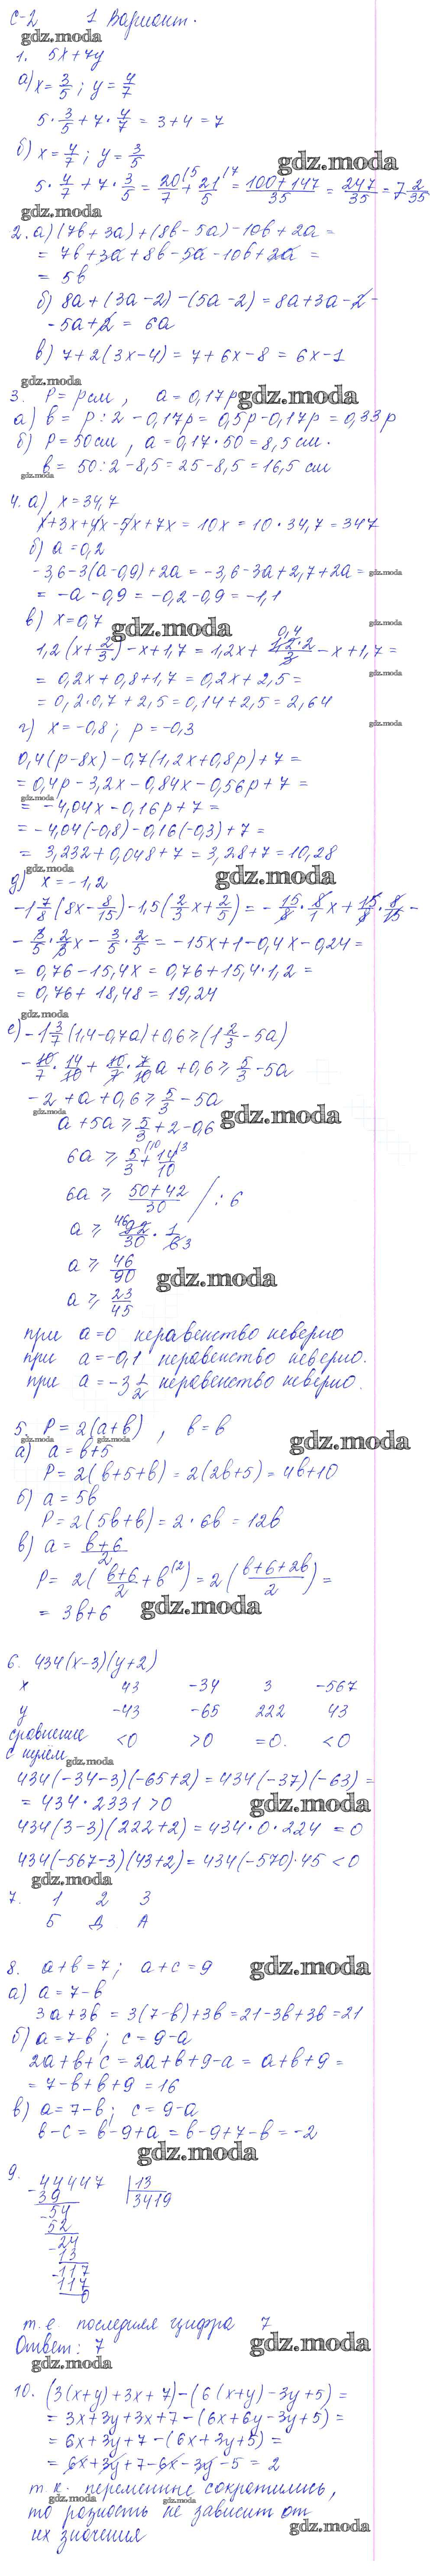 С-2 1 Вариант.
gdz.moda
1. 5x+7y
а) x= 3/5 ; y= 4/7
5·3/5+7·4/7=3+4=7
б) x=4/7; y=3/5
gdz.moda
5·4/7+7·3/5=20/7(5+21/5(7=100+147/35=247/35=7 2/35
gdz.moda
2. а) (7b+3a)+(8b-5a)-10b+2a=
=7b+3a+8b-5a-10b+2a=
=5b
б) 8a+(3a-2)-(5a-2)=8a+3a-2-
-5a+2=6a
в) 7+2(3x-4)=7+6x-8=6x-1
gdz.moda
3. P=pсм, a=0,17p gdz.moda
а) b=p:2-0,17p=0,5p-0,17p=0,33p
б) P=50см, a=0,17·50=8,5см.
gdz.moda b=50:2-8,5=25-8,5=16,5 см
4. а) x=34,7
x+3x+4x-5x+7x=10x=10·34,7=347
б) a=0,2
-3,6-3(a-0,9)+2a=-3,6-3a+2,7+2a= gdz.moda
=-a-0,9=-0,2-0,9=-1,1
в) x=0,7 gdz.moda gdz.moda
0,4
1,2(x+2/3)-x+1,7=1,2x+1,2·2/3-x+1,7=
=0,2x+0,8+1,7=0,2x+2,5= gdz.moda
=0,2·0,7+2,5=0,14+2,5=2,64
г) x=-0,8; p=-0,3 gdz.moda
0,4(p-8x)-0,7(1,2x+0,8p)+7=
=0,4p-3,2x-0,84x-0,56p+7=
gdz.moda
=-4,04x-0,16p+7=
=-4,04(-0,8)-0,16(-0,3)+7=
=3,232+0,048+7=3,28+7=10,28
gdz.moda gdz.moda
д) x=-1,2
-1 7/8(8x-8/15)-1,5(2/3x+2/5)=-15/8·8/1x+15/8·8/15-
-3/5·2/3x-3/5·2/5=-15x+1-0,4x-0,24=
=0,76-15,4x=0,76+15,4·1,2=
=0,76+18,48=19,24
gdz.moda
е) -1 3/7(1,4-0,7a)+0,6≥(1 2/3-5a)
-10/7·14/10+10/7·7/10a+0,6≥5/3-5a
-2+a+0,6≥5/3-5a
gdz.moda gdz.moda
a+5a≥5/3+2-0,6
6a≥5/3(10+14/10(3
6a≥50+42/30 /:6
a≥46 92/30·1/6 3
a≥46/90 gdz.moda
a≥23/45
при a=0 неравенство неверно
при a=-0,1 неравенство неверно.
при a=-3 1/2 неравенство неверно.
5. P=2(a+b), b=b
gdz.moda gdz.moda gdz.moda
а) a=b+5
P=2(b+5+b)=2(2b+5)=4b+10
б) a=5b
P=2(5b+b)=2·6b=12b
в) a=b+6/2
P=2(b+6/2+b(2)=2(b+6+2b/2)=
=3b+6 gdz.moda
6. 434(x-3)(y+2)
x 43 -34 3 -567
y -43 -65 222 43
сравнение
с нулём <0 >0 =0. <0
gdz.moda
434(-34-3)(-65+2)=434(-37)(-63)=
=434·2331>0 gdz.moda
434(3-3)(222+2)=434·0·224=0
434(-567-3)(43+2)=434(-570)·45<0
gdz.moda
7. 1 2 3
Б Д А
8. a+b=7; a+c=9 gdz.moda
а) a=7-b
3a+3b=3(7-b)+3b=21-3b+3b=21
б) a=7-b; c=9-a
2a+b+c=2a+b+9-a=a+b+9=
=7-b+b+9=16
в) a=7-b; c=9-a
b-c=b-9+a=b-9+7-b=-2
gdz.moda
9.
44447 13
-39 3419
-54
52
-24
13
-117
117
0
т.е. последняя цифра 7
Ответ: 7 gdz.moda
gdz.moda
10. (3(x+y)+3x+7)-(6(x+y)-3y+5)=
=3x+3y+3x+7-(6x+6y-3y+5)=
=6x+3y+7-(6x+3y+5)=
=6x+3y+7-6x-3y-5=2
т.к. переменные сократились,
gdz.moda gdz.moda
то разность не зависит от
их значения gdz.moda